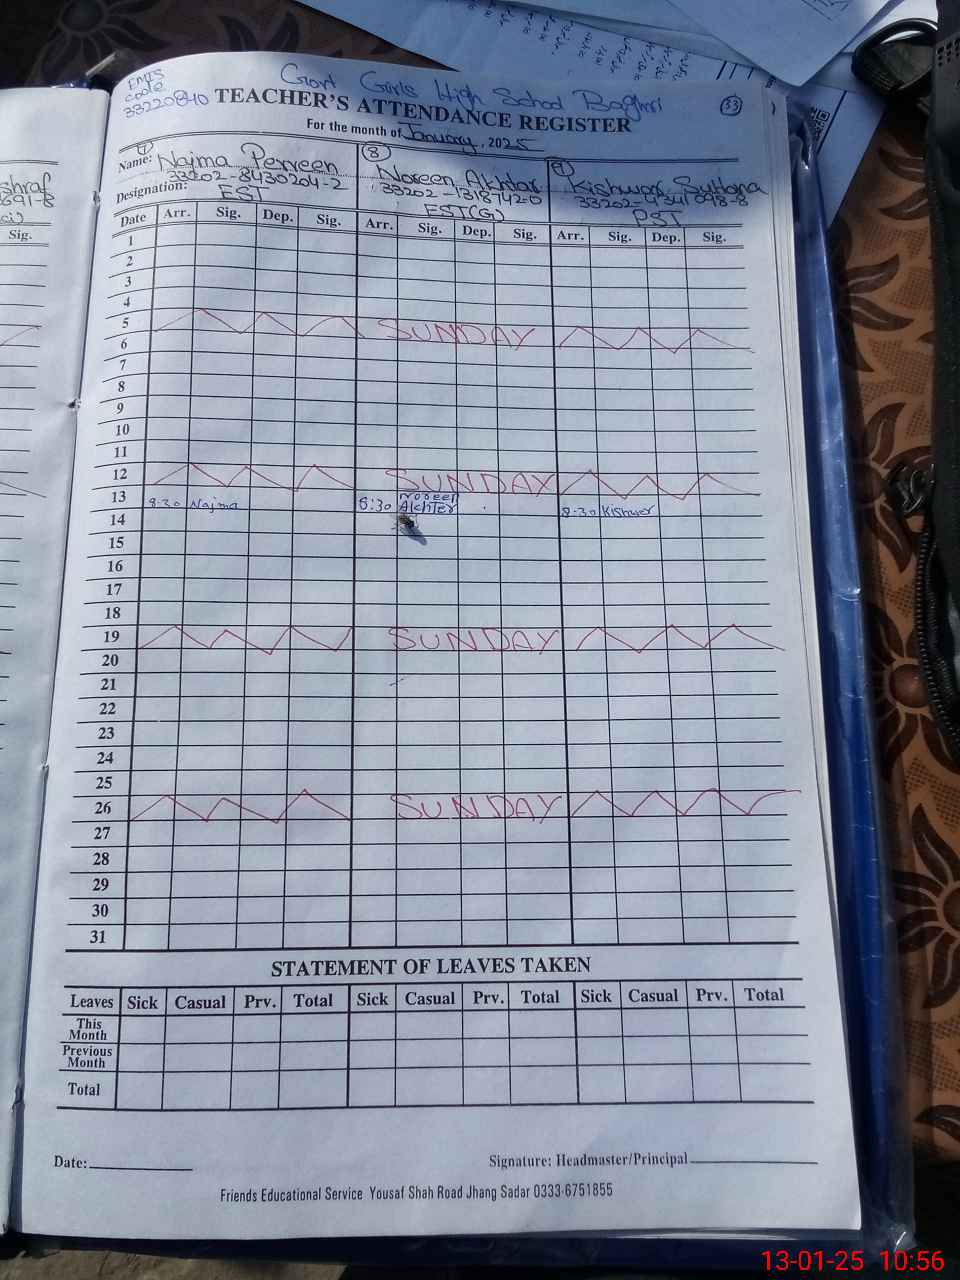 EMIS
code
33220840
Govt Girls High School Baghri
33
TEACHER'S ATTENDANCE REGISTER
For the month of January, 2025
7
8
9
Name: Najma Perveen
Noreen Akhtar
Kishwar Sultana
33202-8430204-2
33202-1318742-0
33202-4341098-8
Designation: EST
EST(G)
PST
shraf
891-8
Sig.
Date Arr. Sig. Dep. Sig. Arr. Sig. Dep. Sig. Arr. Sig. Dep. Sig.
1
2
3
4
5 SUNDAY
6
7
8
9
10
11
12 SUNDAY
13 8:30 Najma 8:30 Noreen Akhter 8:30 Kishwer
14
15
16
17
18
19 SUNDAY
20
21
22
23
24
25
26 SUNDAY
27
28
29
30
31
STATEMENT OF LEAVES TAKEN
Leaves Sick Casual Prv. Total Sick Casual Prv. Total Sick Casual Prv. Total
This Month
Previous Month
Total
Date:
Signature: Headmaster/Principal
Friends Educational Service Yousaf Shah Road Jhang Sadar 0333-6751855
13-01-25 10:56